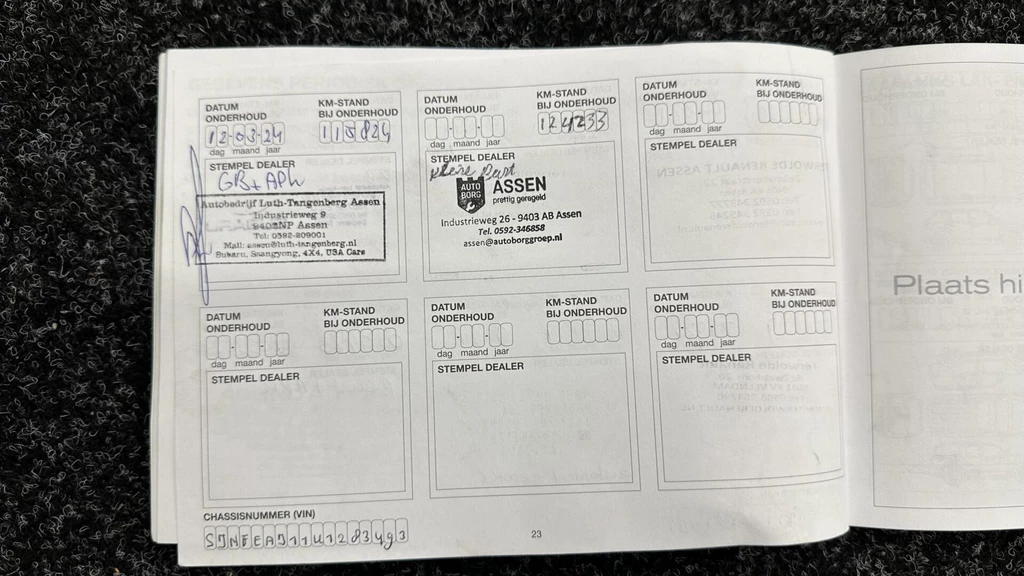 DATUM ONDERHOUD
KM-STAND BIJ ONDERHOUD
12-03-24
115824
dag maand jaar
STEMPEL DEALER
GB + APK
Autobedrijf Luth-Tangenberg Assen
Industrieweg 9
9402NP Assen
Tel: 0592-209001
Mail: assen@luth-tangenberg.nl
Subaru, Ssangyong, 4X4, USA Cars
DATUM ONDERHOUD
KM-STAND BIJ ONDERHOUD
124233
dag maand jaar
STEMPEL DEALER
Kleine Beurt
AUTO BORG
ASSEN
prettig geregeld
Industrieweg 26 - 9403 AB Assen
Tel. 0592-346858
assen@autoborggroep.nl
DATUM ONDERHOUD
KM-STAND BIJ ONDERHOUD
dag maand jaar
STEMPEL DEALER
DATUM ONDERHOUD
KM-STAND BIJ ONDERHOUD
dag maand jaar
STEMPEL DEALER
DATUM ONDERHOUD
KM-STAND BIJ ONDERHOUD
dag maand jaar
STEMPEL DEALER
DATUM ONDERHOUD
KM-STAND BIJ ONDERHOUD
dag maand jaar
STEMPEL DEALER
CHASSISNUMMER (VIN)
SJNFEAJ11U1283493
23
Plaats hi